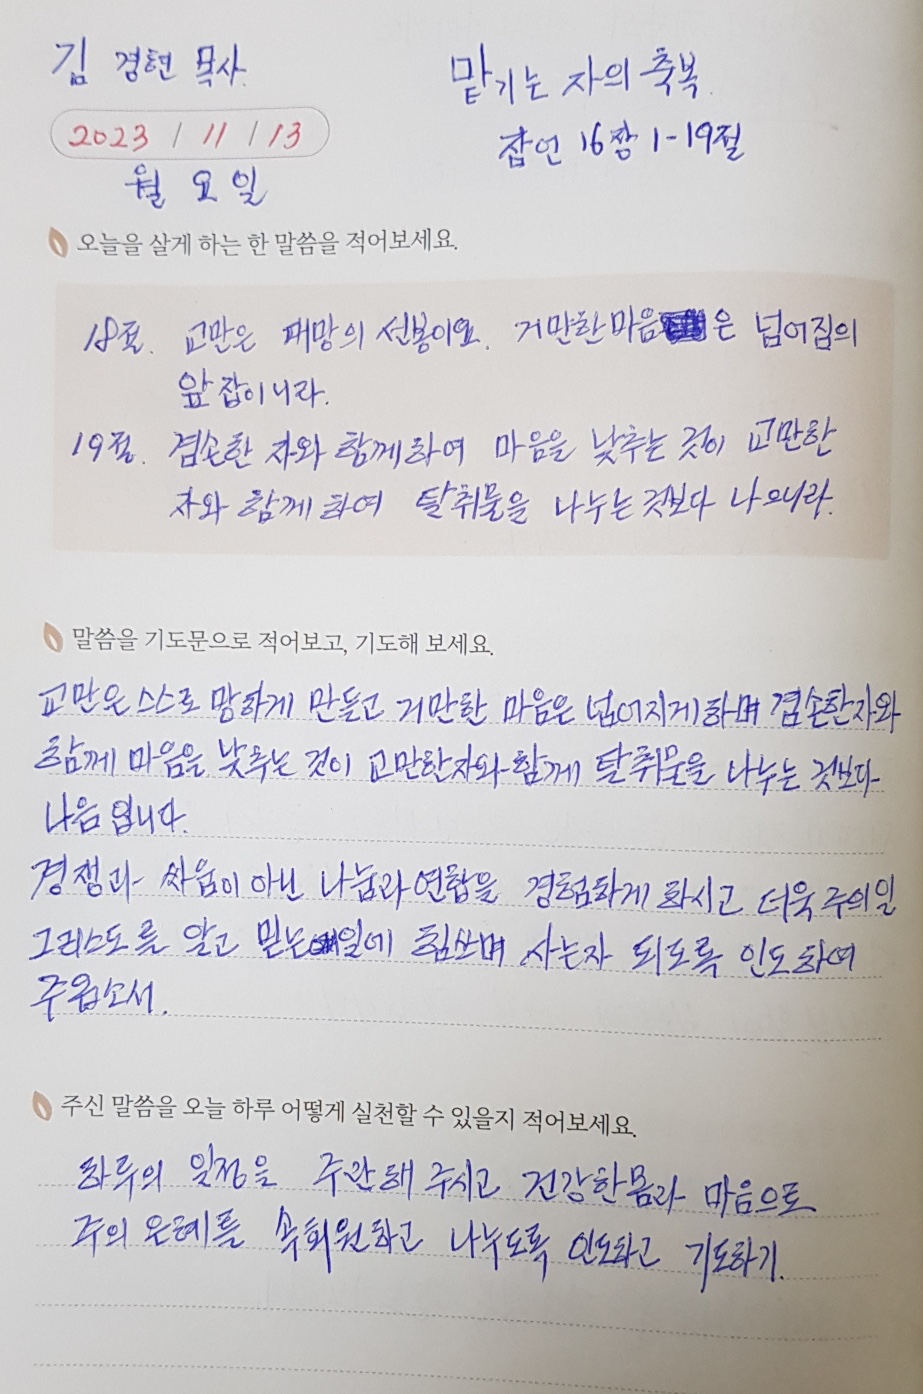 김 경현 목사.
맡기는 자의 축복.
2023 / 11 / 13
잠언 16장 1-19절
월 요 일
오늘을 살게 하는 한 말씀을 적어보세요.
18절. 교만은 패망의 선봉이요. 거만한 마음은 넘어짐의
앞잡이니라.
19절. 겸손한 자와 함께하여 마음을 낮추는 것이 교만한
자와 함께 하여 탈취물을 나누는 것보다 나으니라.
말씀을 기도문으로 적어보고, 기도해 보세요.
교만은 스스로 망하게 만들고 거만한 마음은 넘어지게하며 겸손한자와
함께 마음을 낮추는 것이 교만한자와 함께 탈취물을 나누는 것보다
나음 입니다.
경쟁과 싸움이 아닌 나눔과 연합을 경험하게 하시고 더욱 주의일
그리스도를 알고 믿는일에 힘쓰며 사는자 되도록 인도하여
주옵소서.
주신 말씀을 오늘 하루 어떻게 실천할 수 있을지 적어보세요.
하루의 일정을 주관해 주시고 건강한몸과 마음으로
주의 은혜를 속회원하고 나누도록 인도하고 기도하기.